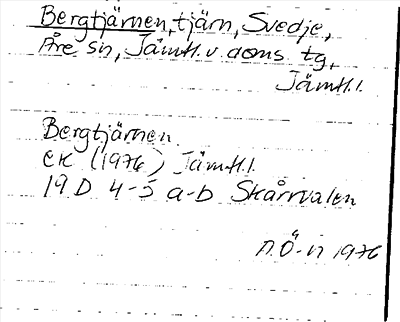 Bergtjärnen, tjärn, Svedje,
Åre sn, Jämtl. v. doms. tg,
Jämtl. l.
Bergtjärnen
ek (1976) Jämtl. l.
19 D 4-5 a-b Skårrvalen
A.Ö-n 1976